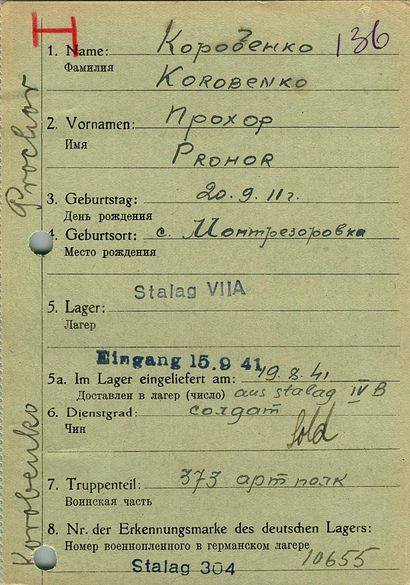 H
136
1. Name: Коробенко
Фамилия
KOROBENKO
2. Vornamen: Прохор
Имя
PROHOR
3. Geburtstag: 20. 9. 11 г.
День рождения
4. Geburtsort: с. Монтрезоровка
Место рождения
Stalag VIIA
5. Lager:
Лагер
Eingang 15.9 41
5a. Im Lager eingeliefert am: 19. 8. 41
Доставлен в лагер (число) aus stalag IV B
6. Dienstgrad: солдат
Чин
Sold
7. Truppenteil: 373 арт полк
Воинская часть
8. Nr. der Erkennungsmarke des deutschen Lagers:
Номер военнопленного в германском лагере 10655
Stalag 304
Korobenko
Prochor